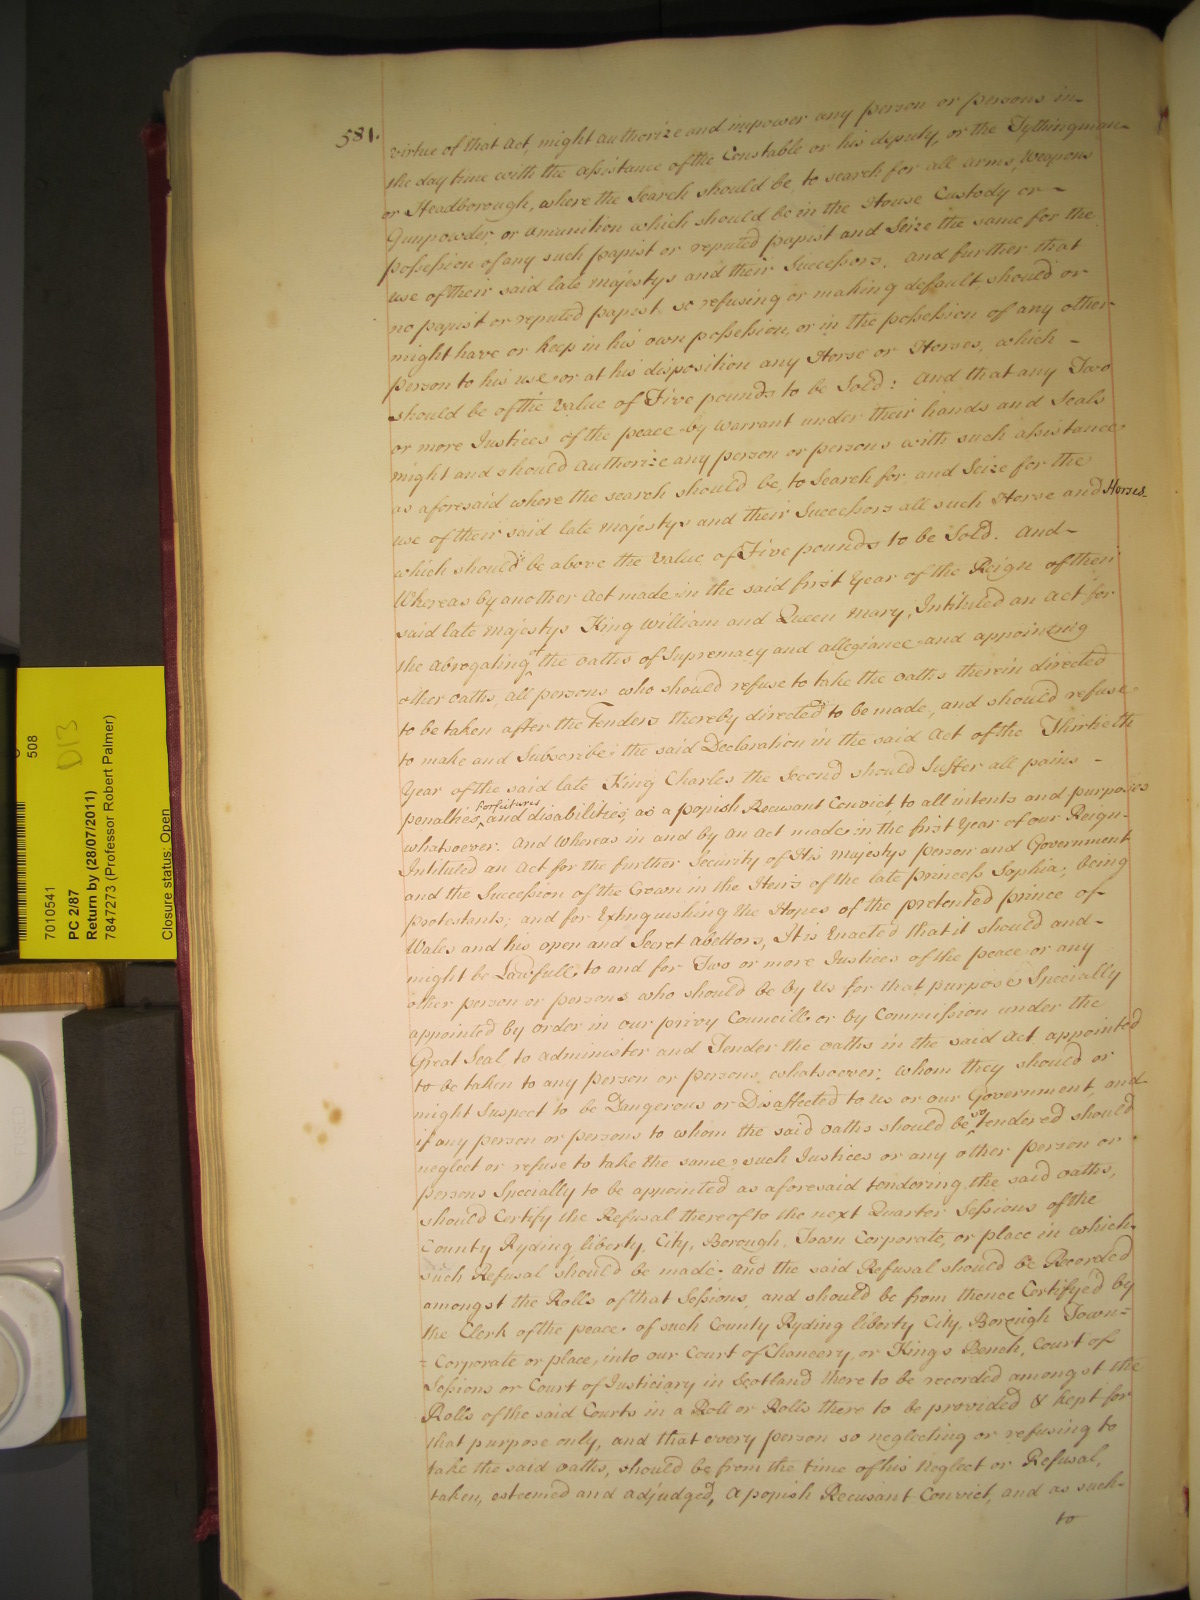 581.
virtue of that Act, might authorize and impower any person or persons in
the day time with the assistance of the Constable or his deputy, or the Tythingman
or Headborough, where the Search should be, to search for all arms, Weapons
Gunpowder, or amunition which should be in the House Custody or
possession of any such papist or reputed papist and Seize the same for the
use of their said late majestys and their Successors. and further that
no papist or reputed papist so refusing or making default should or
might have or keep in his own possession, or in the possession of any other
person to his use or at his disposition any Horse or Horses, which
should be of the value of Five pounds to be Sold: And that any Two
or more Justices of the peace by warrant under their hands and Seals
might and should Authorize any person or persons with such assistance
as aforesaid where the search should be, to Search for and Seize for the
use of their said late majestys and their Successors all such Horse and Horses
which should be above the value of Five pounds to be Sold. And
Whereas by another Act made in the said first Year of the Reign of their
said late majestys King William and Queen Mary, Intituled an Act for
the Abrogating of the oaths of Supremacy and allegiance and appointing
other oaths, all persons who should refuse to take the oaths therein directed
to be taken after the Tenders thereby directed to be made, and should refuse
to make and Subscribe the said Declaration in the said Act of the Thirtieth
Year of the said late King Charles the Second should Suffer all pains
penalties, forfeitures and disabilities, as a popish Recusant Convict to all intents and purposes
whatsoever. And whereas in and by an Act made in the first Year of our Reign
Intituled an Act for the further Security of His majestys person and Government
and the Succession of the Crown in the Heirs of the late princess Sophia, being
protestants, and for Extinguishing the Hopes of the pretended prince of
Wales and his open and Secret Abettors, It is Enacted that it should and
might be Lawfull, to and for Two or more Justices of the peace or any
other person or persons who should be by Us for that purpose Specially
appointed by order in our privy Councill or by Commission under the
Great Seal to administer and Tender the oaths in the said Act appointed
to be taken to any person or persons whatsoever, whom they should or
might Suspect to be Dangerous or Disaffected to us or our Government, and
if any person or persons to whom the said oaths should be so tendered should
neglect or refuse to take the same, such Justices or any other person or
persons Specially to be appointed as aforesaid tendering the said oaths,
should Certify the Refusal thereof to the next Quarter Sessions of the
County Ryding, liberty, City, Borough, Town Corporate, or place in which
such Refusal should be made. and the said Refusal should be Recorded
amongst the Rolls of that Sessions, and should be from thence Certifyed by
the Clerk of the peace of such County Ryding liberty City, Borough Town=
=Corporate or place, into our Court of Chancery, or Kings Bench, Court of
Sessions or Court of Justiciary in Scotland there to be recorded amongst the
Rolls of the said Courts in a Roll or Rolls there to be provided & kept for
that purpose only, and that every person so neglecting or refusing to
take the said oaths, should be from the time of his Neglect or Refusal,
taken, esteemed and adjudged, A popish Recusant Convict, and as such
to
508
D13
7010541
PC 2/87
Return by (28/07/2011)
7847273 (Professor Robert Palmer)
Closure status: Open